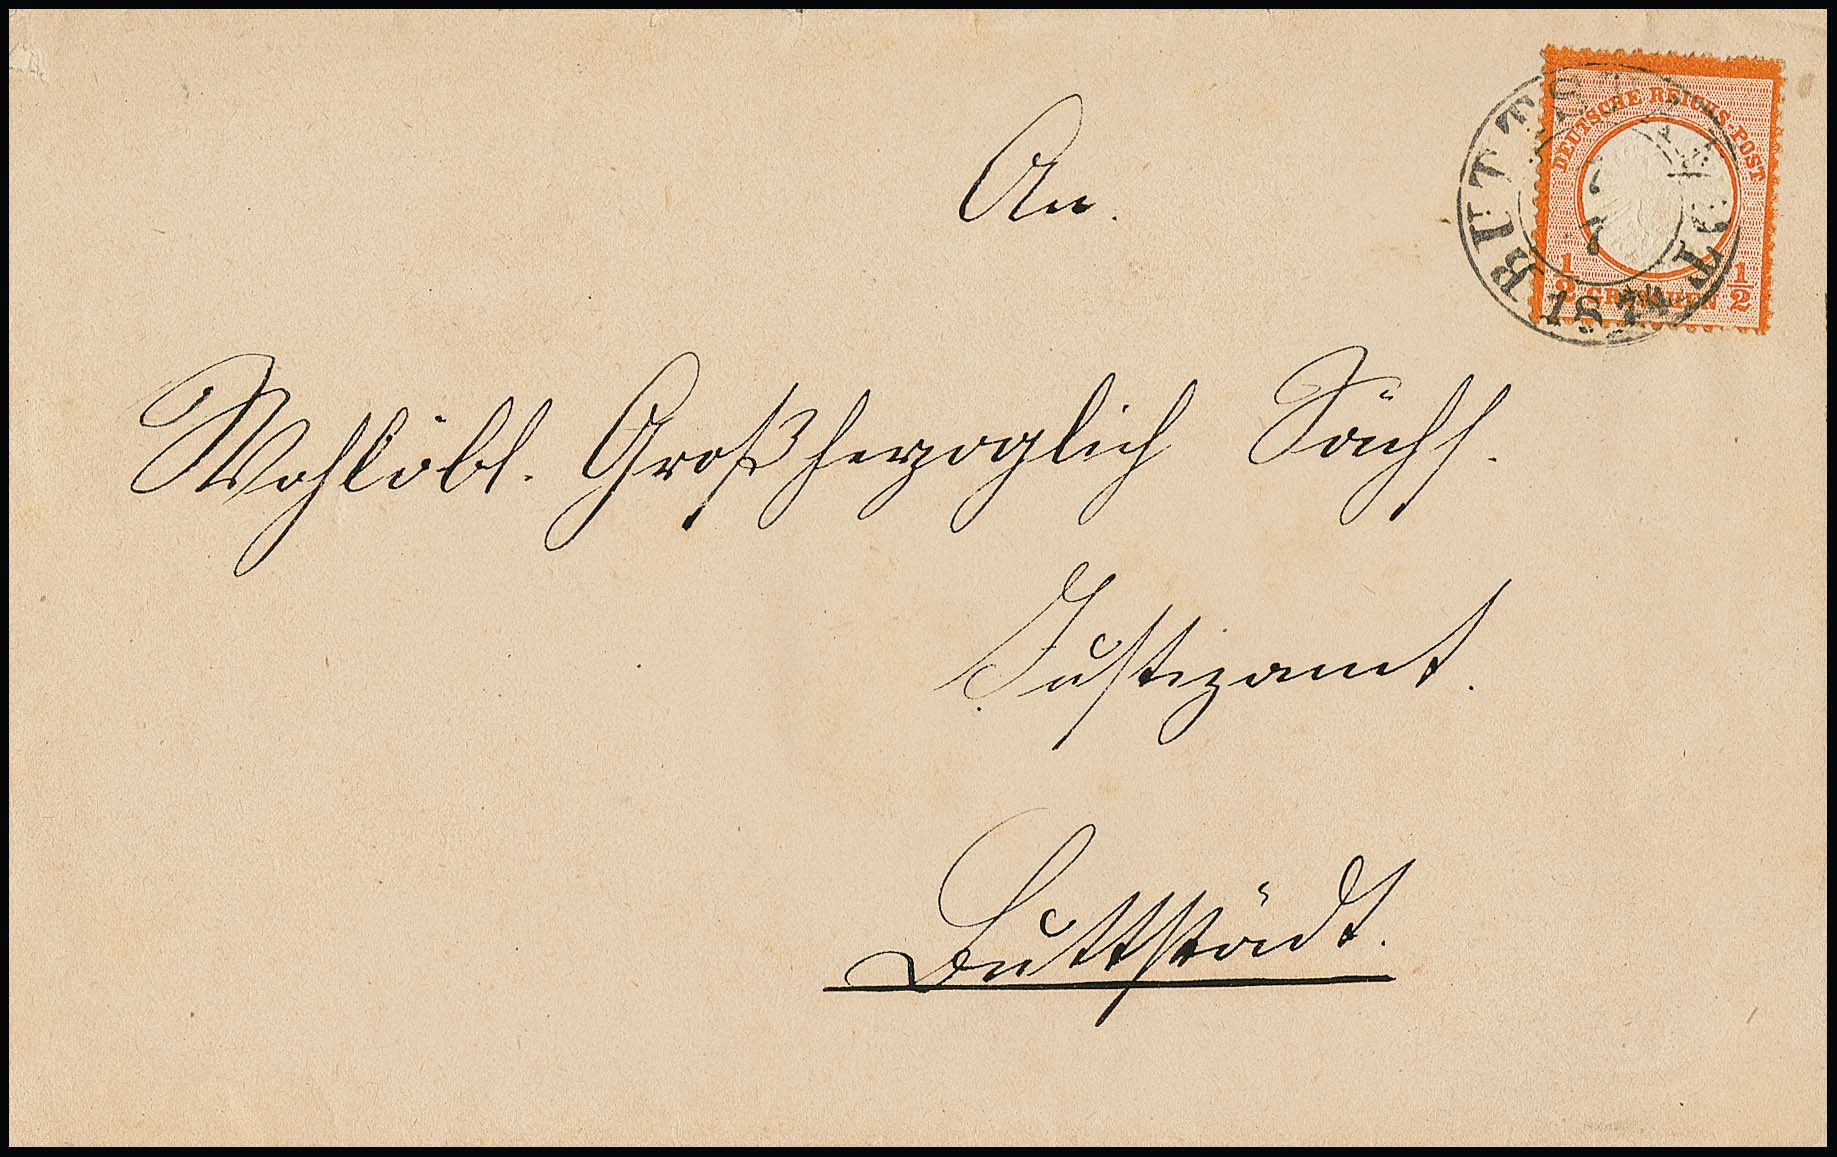 An.
DEUTSCHE REICHS-POST
1/2 GROSCHEN 1/2
BUTTSTAEDT
7
7
Wohllöbl. Großherzoglich Sächs.
Justizamt.
Buttstädt.